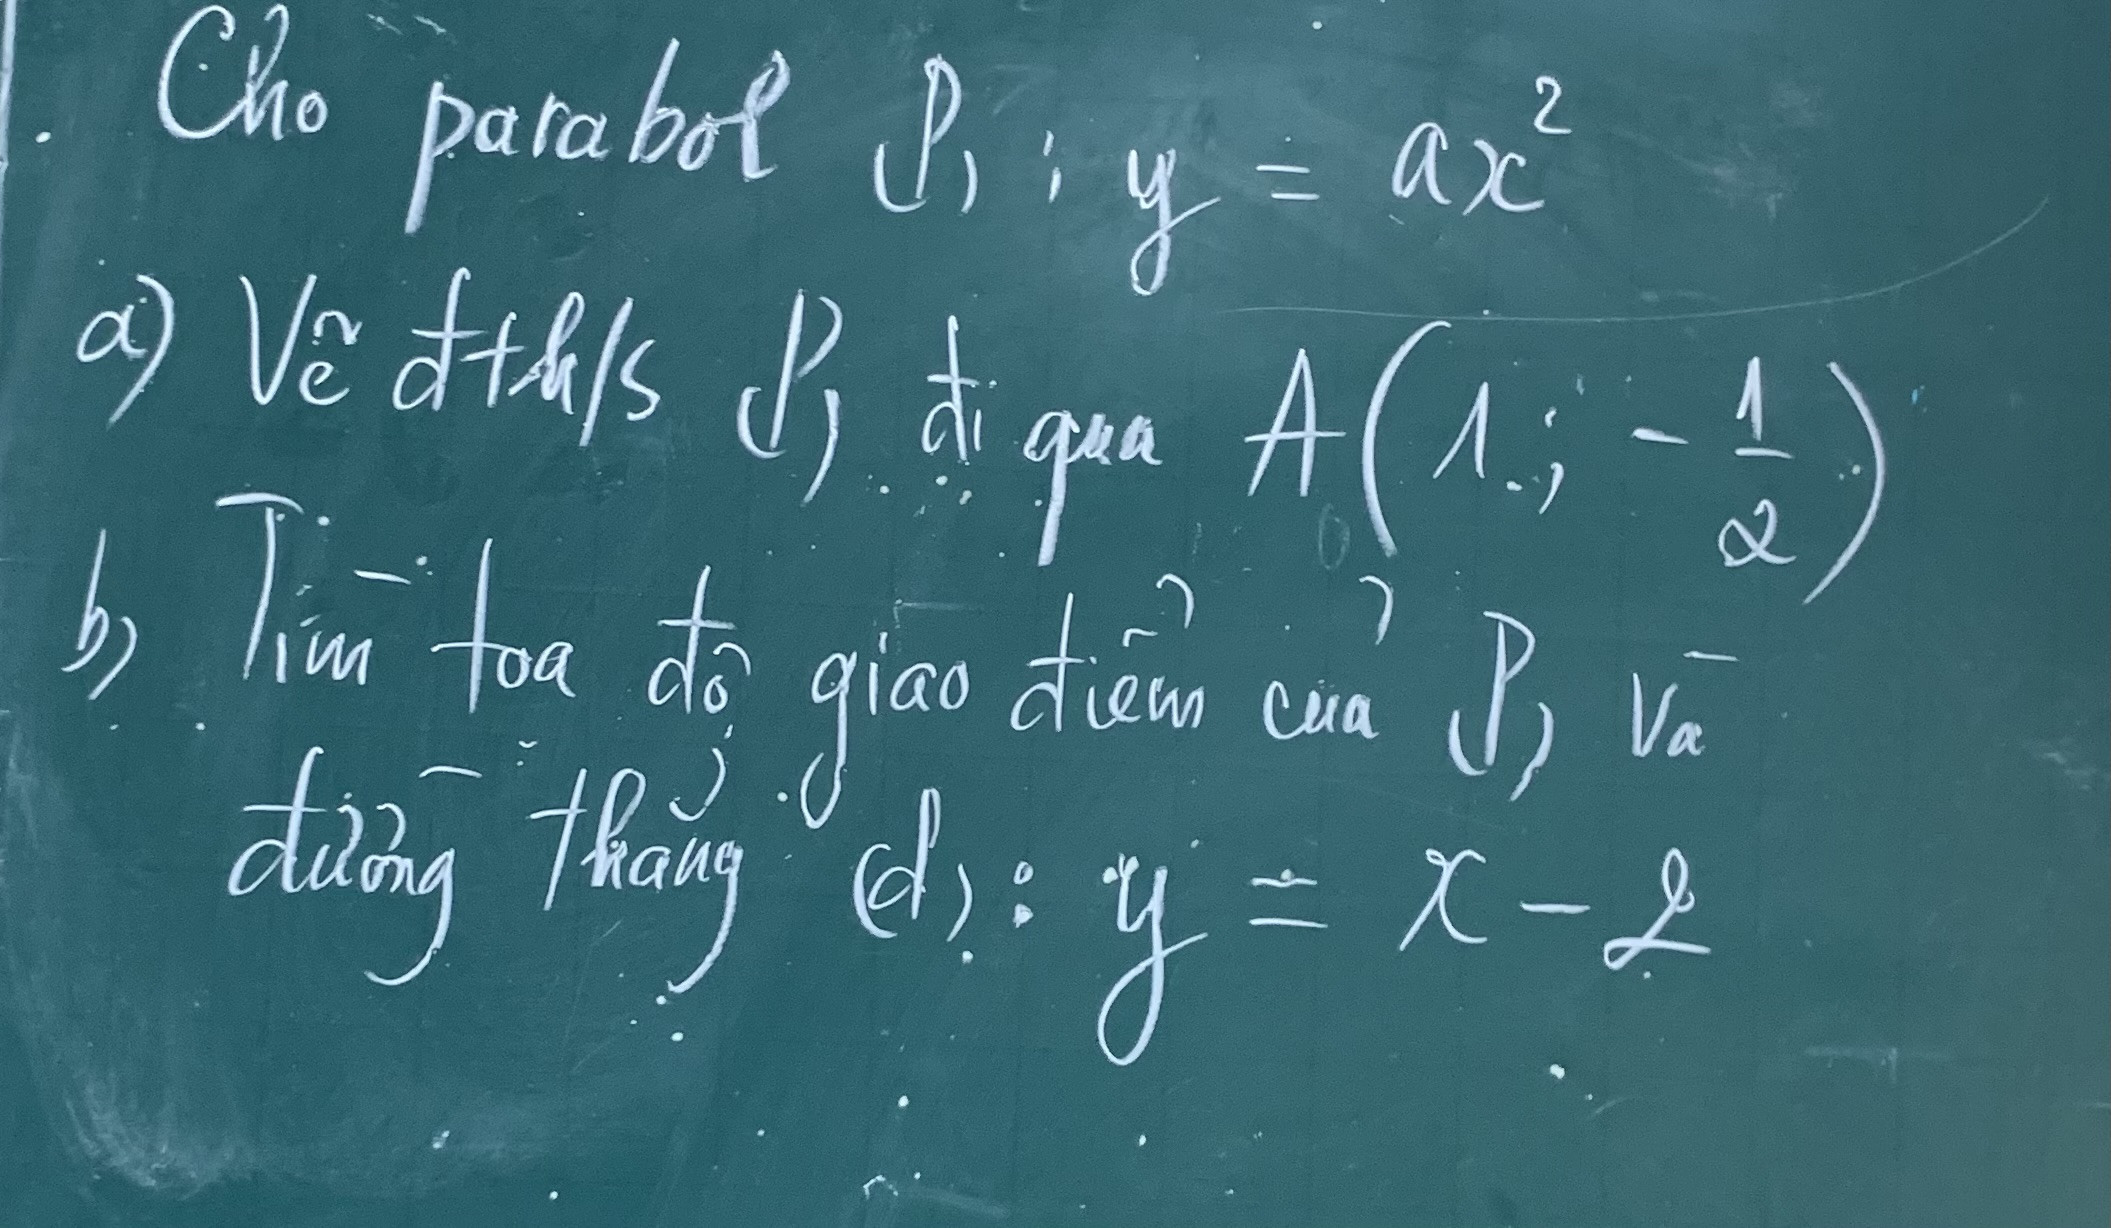 Cho parabol (P) : y = ax²
a) Vẽ đths (P) đi qua A(1 ; -1/2)
b) Tìm tọa độ giao điểm của (P) và
đường thẳng (d) : y = x - 2